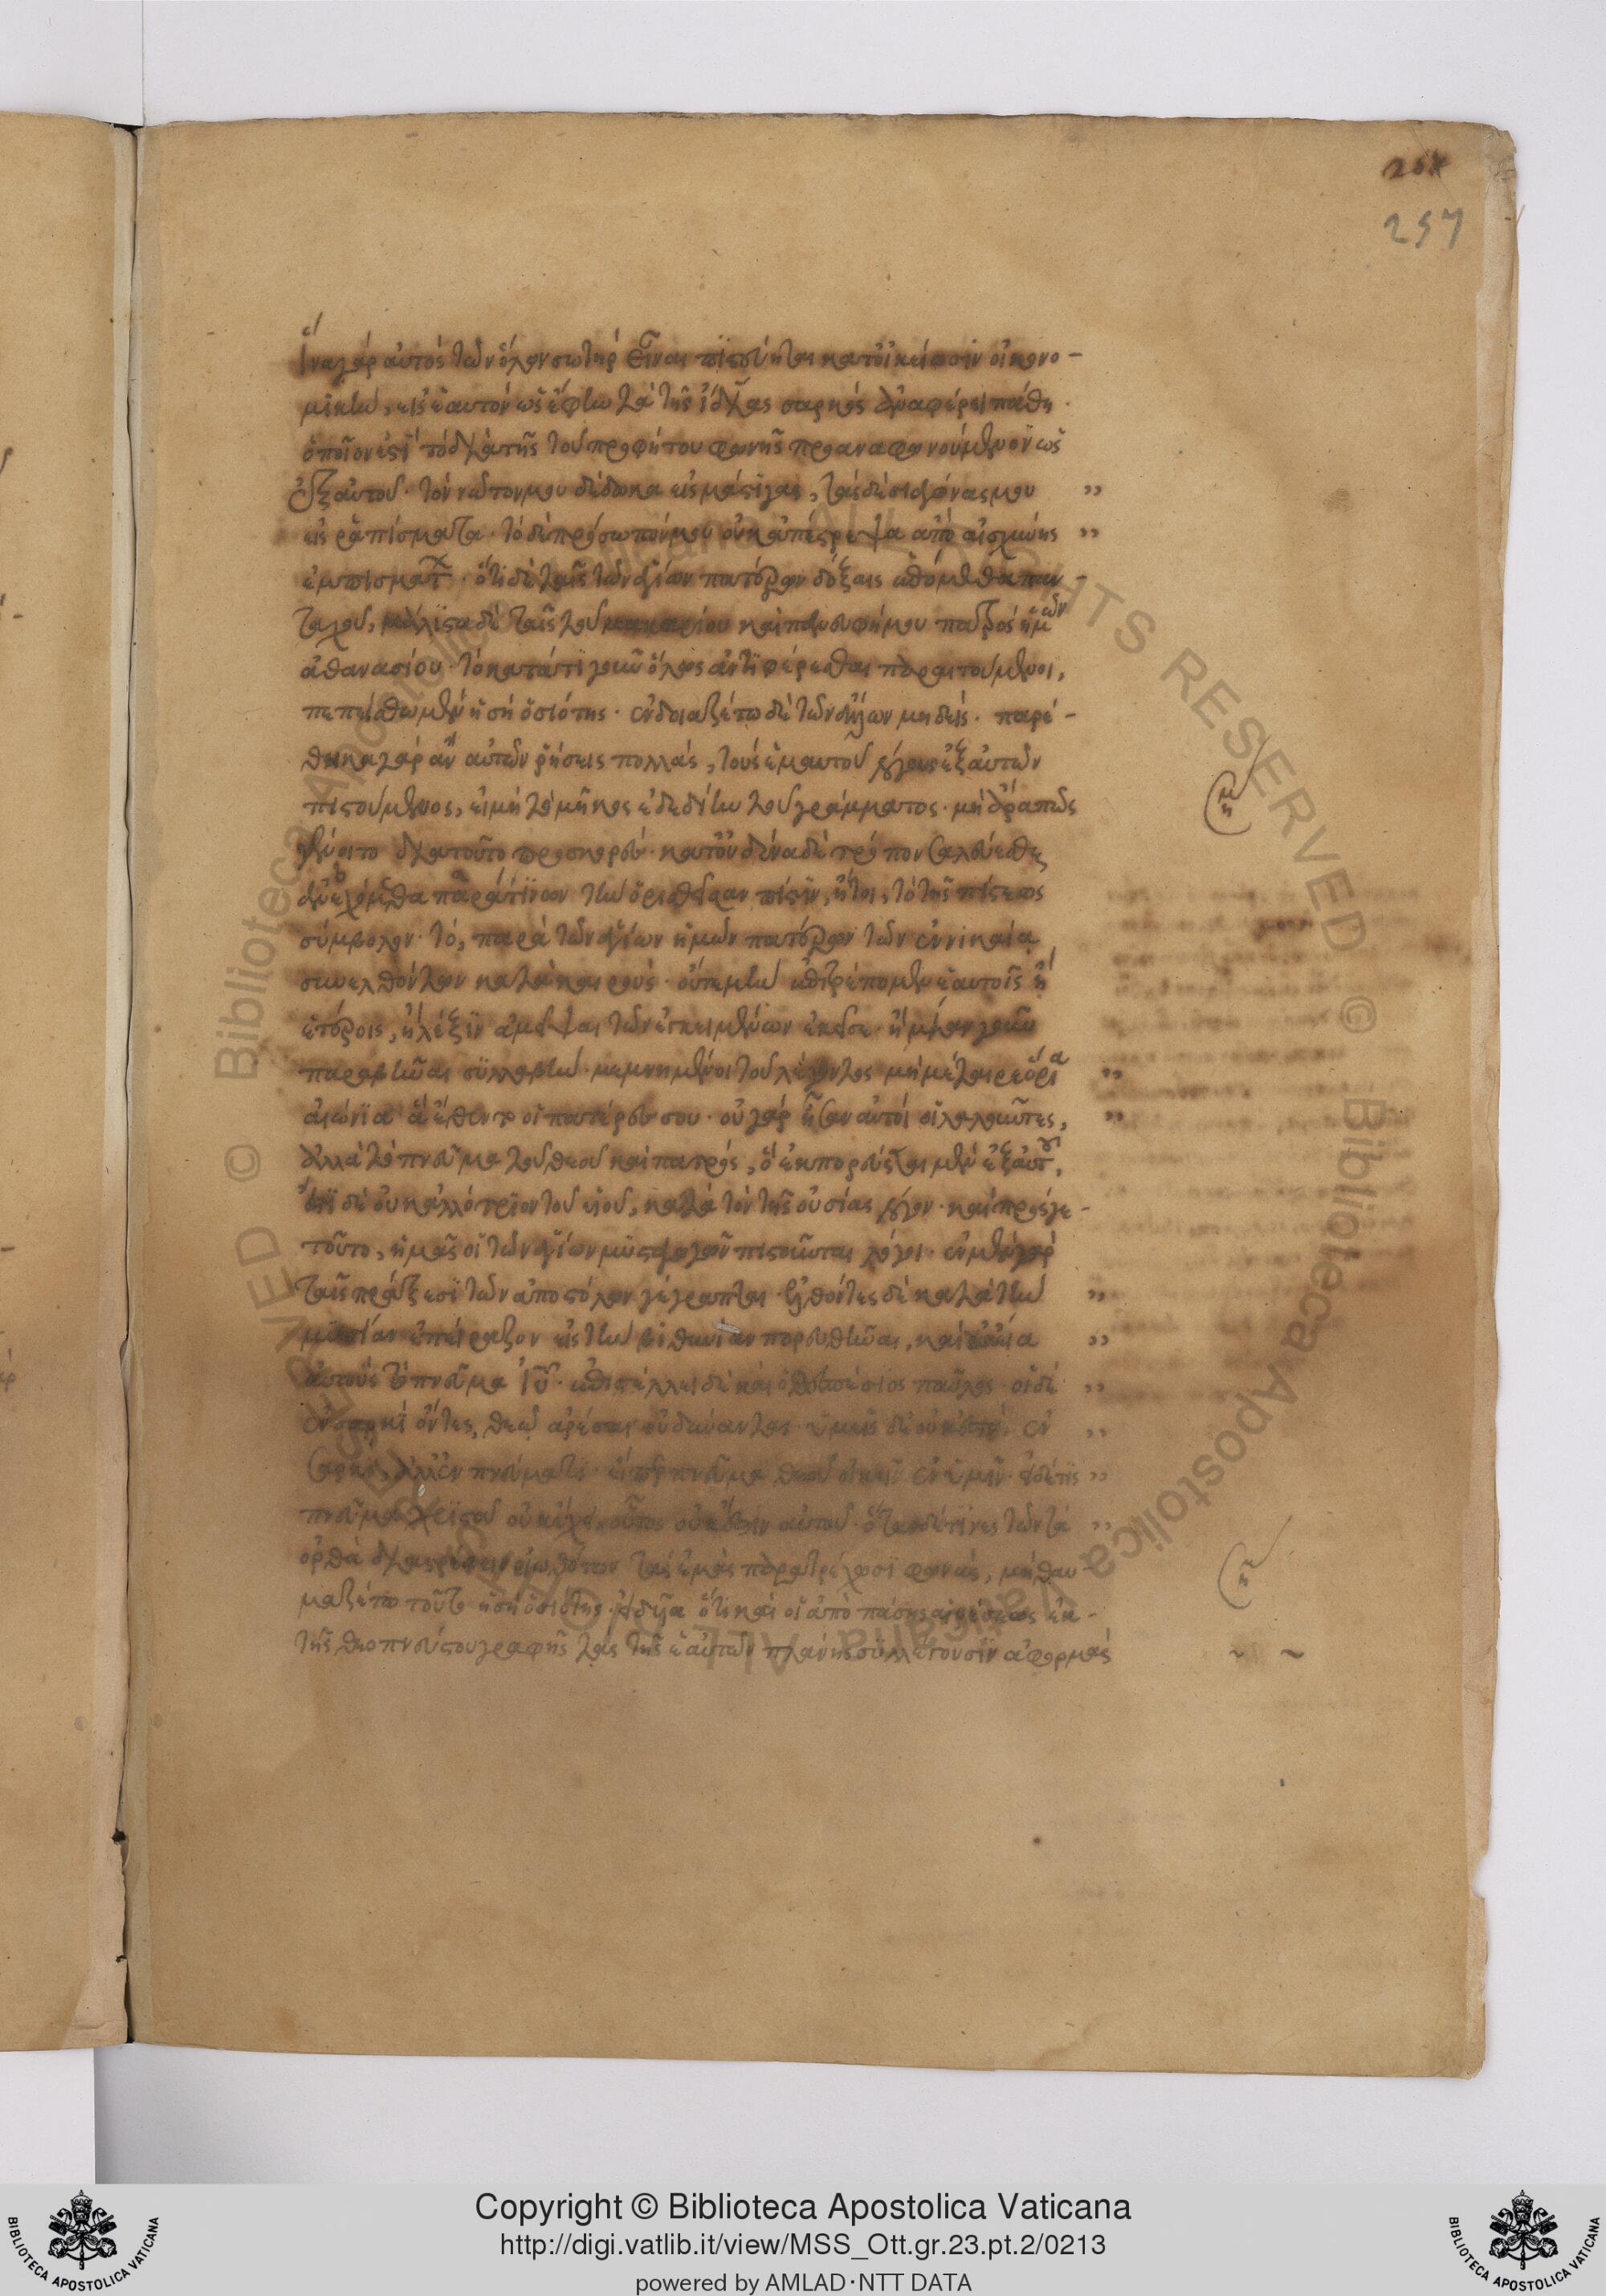 204
257
Ἵνα γὰρ αὐτὸς τῶν ὅλων σωτὴρ εἶναι πιστεύηται κατ' οἰκείωσιν οἰκονο-
μικὴν, εἰς ἑαυτὸν ὡς ἔφην τὰ τῆς ἰδίας σαρκὸς ἀναφέρει πάθη.
ὁποῖον ἐστὶ τὸ διὰ τῆς τοῦ προφήτου φωνῆς προαναφωνούμενον ὡς
ἐξ αὐτοῦ. τὸν νῶτον μου δέδωκα εἰς μάστιγας, τὰς δὲ σιαγόνας μου "
εἰς ῥαπίσματα. τὸ δὲ πρόσωπόν μου οὐκ ἀπέστρεψα ἀπὸ αἰσχύνης "
ἐμπτυσμάτων. ὅτι δὲ ταῖς τῶν ἁγίων πατέρων δόξαις ἑπόμεθα παν-
ταχοῦ, μάλιστα δὲ ταῖς τοῦ μακαρίου καὶ πανευφήμου πατρὸς ἡμῶν
ἀθανασίου. τὸ κατά τι γοῦν ὅλως ἀντιφέρεσθαι παραιτούμενοι,
πεπείσθω μὲν ἡ σὴ ὁσιότης. ἐνδοιαζέτω δὲ τῶν ἄλλων μηδείς. παρέ-
θηκα γὰρ ἂν αὐτῶν ῥήσεις πολλὰς, τοὺς ἐμαυτοῦ λόγους ἐξ αὐτῶν
πιστούμενος, εἰ μὴ τὸ μῆκος ἐδεδίειν τοῦ γράμματος. μή
γένοιτο διὰ τοῦτο προσκορές. κατ' οὐδένα δὲ τρόπον σαλεύεσθαι
ἀνεχόμεθα παρά τινων τὴν ὁρισθεῖσαν πίστιν, ἤτοι, τὸ τῆς πίστεως
σύμβολον. τὸ, παρὰ τῶν ἁγίων ἡμῶν πατέρων τῶν ἐν νικαίᾳ
συνελθόντων κατὰ καιρούς. οὔτε μὴν ἐπιτρέπομεν ἑαυτοῖς ἢ
ἑτέροις, ἢ λέξιν ἀμεῖψαι τῶν ἐγκειμένων ἐκεῖσε. ἢ μίαν γοῦν
παραβῆναι συλλαβήν. μεμνημένοι τοῦ λέγοντος μὴ μέταιρε ὅρια "
αἰώνια ἃ ἔθεντο οἱ πατέρες σου. οὐ γὰρ ἦσαν αὐτοὶ οἱ λαλοῦντες, "
ἀλλὰ τὸ πνεῦμα τοῦ θεοῦ καὶ πατρὸς, ὃ ἐκπορεύεται μὲν ἐξ αὐτοῦ,
ἔστι δὲ οὐκ ἀλλότριον τοῦ υἱοῦ, κατὰ τὸν τῆς οὐσίας λόγον. καὶ πρός γε
τοῦτο, ἡμᾶς οἱ τῶν ἁγίων μυσταγωγῶν πιστοῦνται λόγοι. ἐν μὲν γὰρ
ταῖς πράξεσι τῶν ἀποστόλων γέγραπται. ἐλθόντες δὲ κατὰ τὴν "
μυσίαν ἐπείραζον εἰς τὴν βιθυνίαν πορευθῆναι, καὶ οὐκ εἴα "
αὐτοὺς τὸ πνεῦμα ἰῦ. ἐπιστέλλει δὲ καὶ ὁ θεσπέσιος παῦλος. οἱ δὲ "
ἐν σαρκὶ ὄντες, θεῷ ἀρέσαι οὐ δύνανται. ὑμεῖς δὲ οὐκ ἐστὲ ἐν "
σαρκὶ, ἀλλ' ἐν πνεύματι. εἴπερ πνεῦμα θεοῦ οἰκεῖ ἐν ὑμῖν. εἰ δέ τις "
πνεῦμα χριστοῦ οὐκ ἔχει, οὗτος οὐκ ἔστιν αὐτοῦ. ὅταν δέ τινες τῶν τὰ "
ὀρθὰ διαστρέφειν εἰωθότων τὰς ἐμὰς παρατρέπωσι φωνὰς, μὴ θαυ-
μαζέτω τοῦτο ἡ σὴ ὁσιότης. ὅτι καὶ οἱ ἀπὸ πάσης αἱρέσεως ἐκ-
τῆς θεοπνεύστου γραφῆς τὰς τῆς ἑαυτῶν πλάνης συλλέγουσιν ἀφορμάς
Copyright © Biblioteca Apostolica Vaticana
http://digi.vatlib.it/view/MSS_Ott.gr.23.pt.2/0213
powered by AMLAD·NTT DATA
BIBLIOTECA APOSTOLICA VATICANA
BIBLIOTECA APOSTOLICA VATICANA